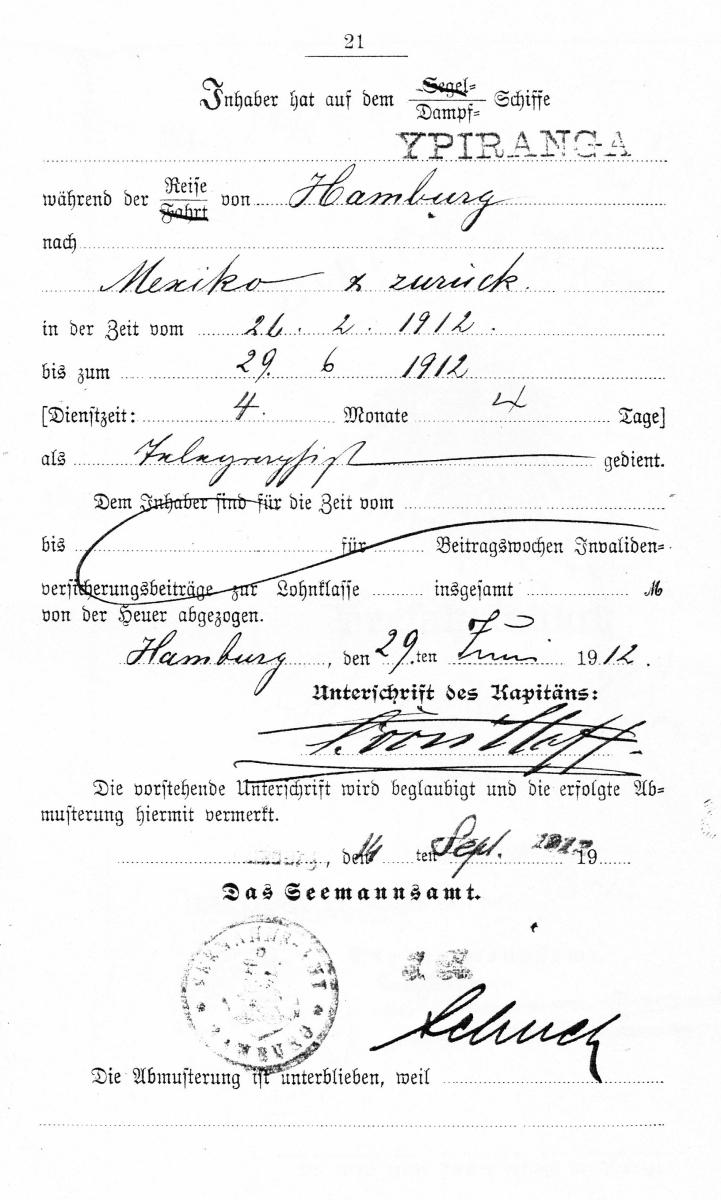 21
Inhaber hat auf dem Segel= Dampf= Schiffe
YPIRANGA
während der Reise Fahrt von Hamburg
nach
Mexiko & zurück.
in der Zeit vom 26. 2. 1912.
bis zum 29. 6 1912
[Dienstzeit: 4. Monate 4 Tage]
als Telegraphist gedient.
Dem Inhaber sind für die Zeit vom
bis für Beitragswochen Invaliden=
versicherungsbeiträge zur Lohnklasse insgesamt M
von der Heuer abgezogen.
Hamburg, den 29.ten Juni 1912.
Unterschrift des Kapitäns:
Die vorstehende Unterschrift wird beglaubigt und die erfolgte Ab=
musterung hiermit vermerkt.
, den 14 ten Sept. 19
Das Seemannsamt.
SEEMANNSAMT
Schuch
Die Abmusterung ist unterblieben, weil